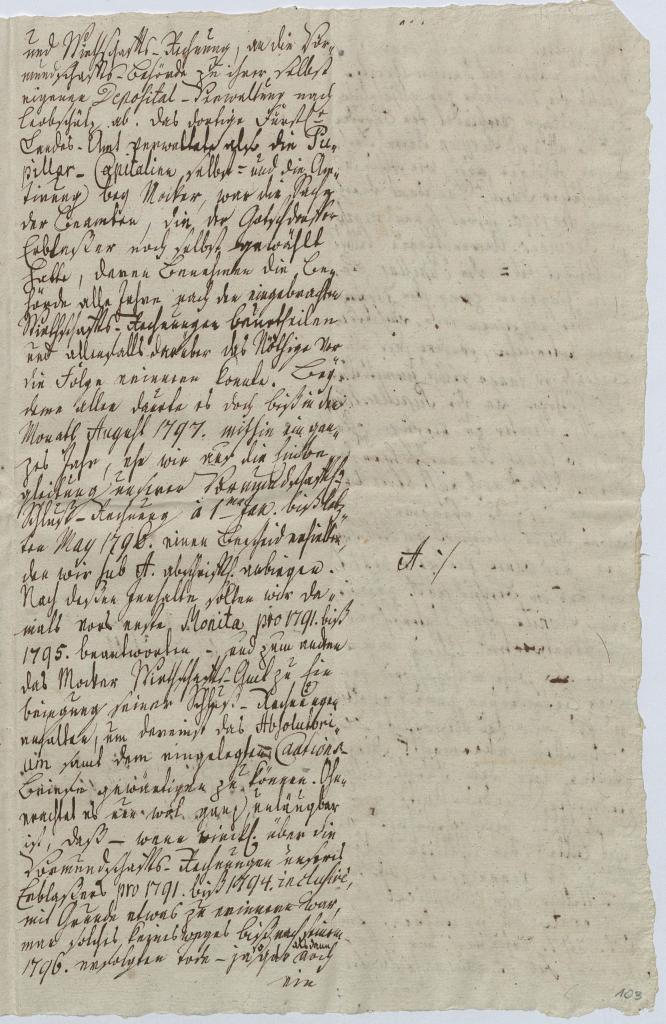 und Wirthschafts-Rechnung, an die Vor-
mundschafts-Behörde zu ihrer selbst
eigenen Deposital-Verwaltung nach
Leobschütz ab. Das dortige Fürstl.
Landes-Amt verwaltete also die Pu-
pillar-Capitalien selbst- und die
bey Mocker, war die Sache
der Beamten, die der
Erblasser noch selbst gewählt
hatte, deren Benehmen die Be-
hörde alle Jahre nach den eingebrachten
Wirthschafts-Rechnungen beurtheilen
und allenfalls darüber das Nöthige vor
die Folge erinnern konnte. Bey
deme allen dauerte es doch biß in den
Monath August 1797. mithin ein gan-
zes Jahr, ehe wir auf die
gleitung unserer Vormundschafts-
Schluß-Rechnung à 1ma Jan. biß letz-
ten May 1796. einen Bescheid erhielten,
den wir sub A. abschriftl. anbiegen.
Nach deßen Innhalte sollten wir da-
mals vors erste Monita pro 1791. biß
1795. beantworten - und zum andern
das Mocker Wirthschafts-Amt zu Ein
bringung seiner Schluß-Rechnungen
anhalten, um dereinst das Absolutori-
um samt dem eingelegten Cautions-
gewärtigen zu können. Ohn-
erachtet es nun wol ganz unläugbar
ist, daß - wenn würkl. über die
Vormundschafts-Rechnungen unsers
Erblaßers pro 1791. biß 1794. inclusive,
mit Grunde etwas zu erinnern war,
man solches keinesweges biß nach seinem
1796. erfolgten Tode - ja gar alsdann noch
ein
A. ./.
103